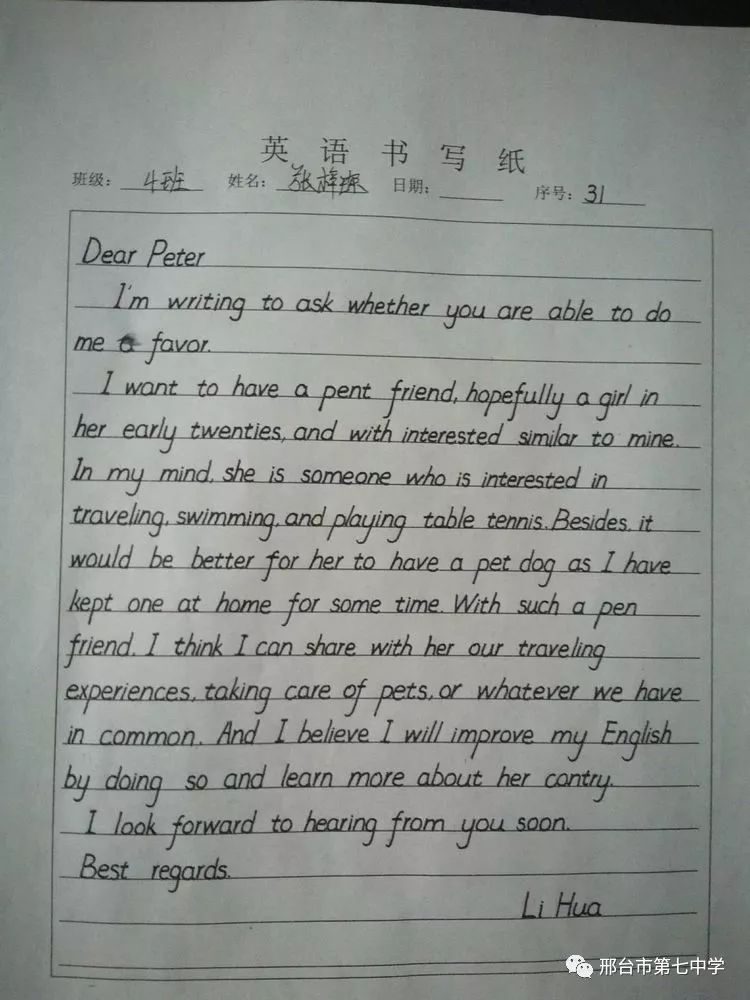 英语书写纸
班级: 4班 姓名: 张梓 日期: 序号: 31
Dear Peter
I'm writing to ask whether you are able to do
me a favor.
I want to have a pent friend, hopefully a girl in
her early twenties, and with interested similar to mine.
In my mind, she is someone who is interested in
traveling, swimming, and playing table tennis. Besides, it
would be better for her to have a pet dog as I have
kept one at home for some time. With such a pen
friend, I think I can share with her our traveling
experiences, taking care of pets, or whatever we have
in common. And I believe I will improve my English
by doing so and learn more about her contry.
I look forward to hearing from you soon.
Best regards.
Li Hua
邢台市第七中学